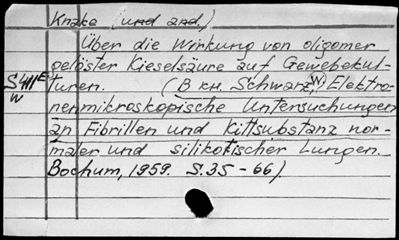 Knake (und and.)
Über die Wirkung von oligomer
gelöster Kieselsäure auf Gewebekul-
turen. (B KH. Schwarz, W, Elektro-
nenmikroskopische Untersuchungen
an Fibrillen und Kittsubstanz nor-
maler und silikotischer Lungen.
Bochum, 1959. S. 35 - 66).
W